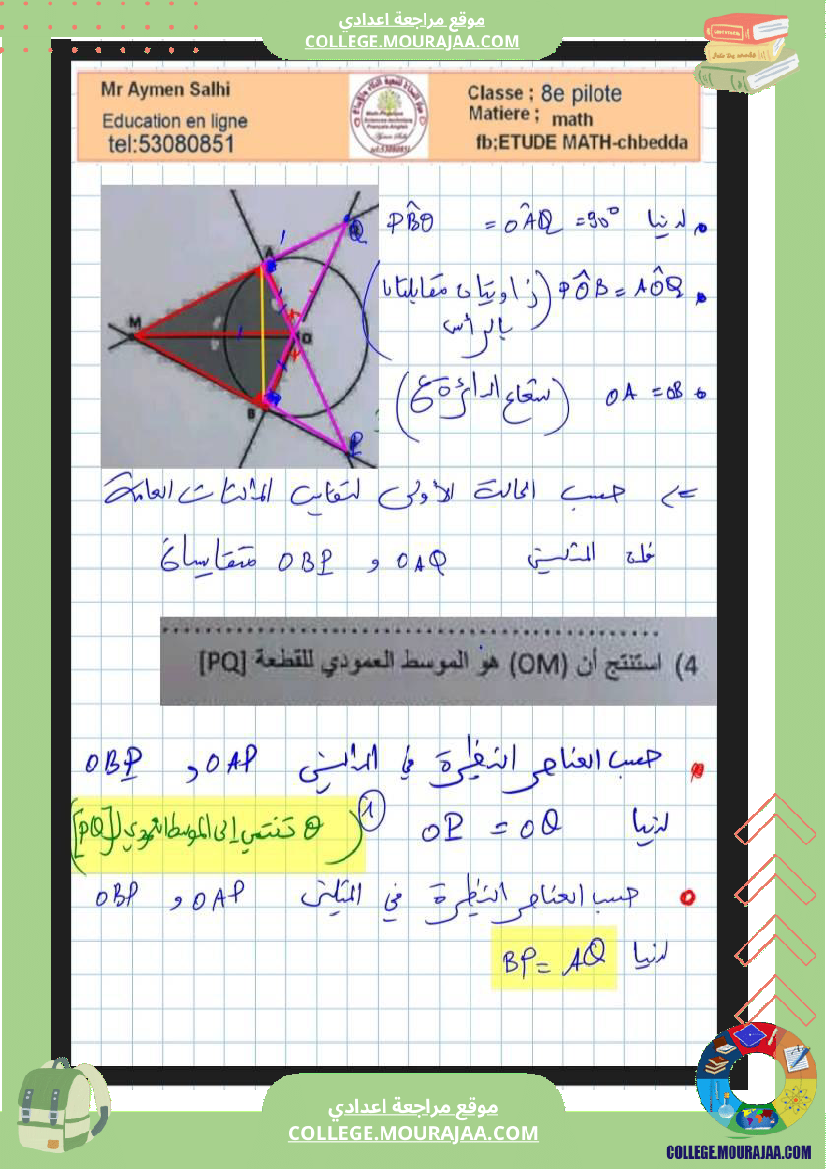 موقع مراجعة اعدادي
COLLEGE.MOURAJAA.COM
Mr Aymen Salhi
Education en ligne
tel:53080851
Classe ; 8e pilote
Matiere ; math
fb;ETUDE MATH-chbedda
لدينا PB̂O = OÂQ = 90°
PÔB = AÔQ (زاويتان متقابلتان
بالرأس)
OA = OB (شعاع الدائرة)
A
Q
M
O
B
P
<= حسب الحالة الأولى لتقايس المثلثات العامة
فإن المثلثين OAQ و OBP متقايسان
4) استنتج أن (OM) هو الموسط العمودي للقطعة [PQ]
حسب العناصر النظيرة في المثلثين OAP و OBP
لدينا OP = OQ (1)
(O تنتمي إلى الموسط العمودي لـ [PQ])
حسب العناصر النظيرة في المثلثين OAP و OBP
لدينا BP = AQ
موقع مراجعة اعدادي
COLLEGE.MOURAJAA.COM
COLLEGE.MOURAJAA.COM